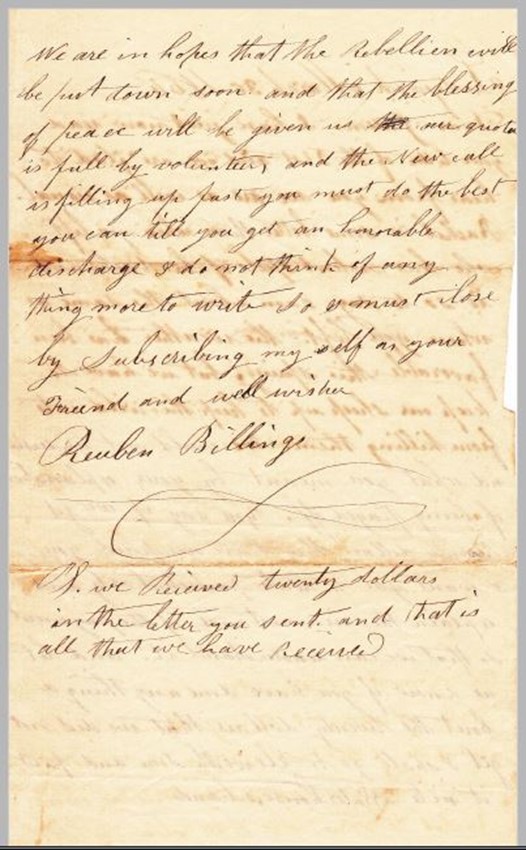 We are in hopes that the Rebellien will
be put down soon and that the blessing
of peace will be given us the our quota
is full by volunteers and the New call
is filling up fast you must do the best
you can till you get an honorable
discharge I do not think of any
thing more to write So I must close
by Subscribing my self as your
Friend and well wisher
Reuben Billings
P.S. we Recieved twenty dollars
in the letter you sent and that is
all that we have Received